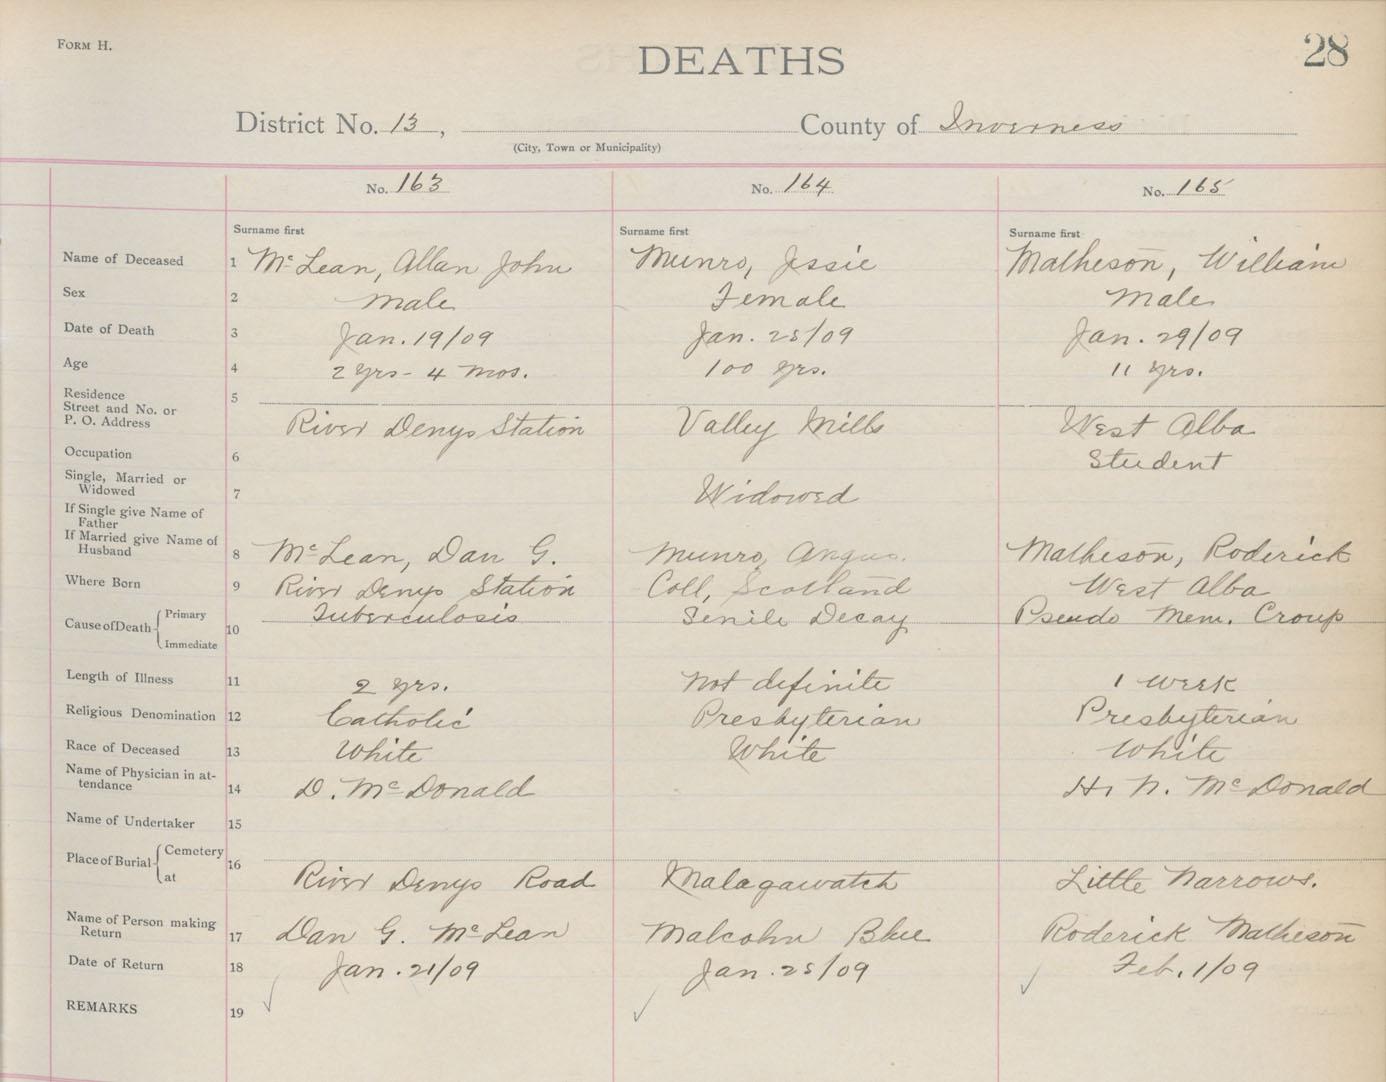 FORM H.
DEATHS
28
District No. 13, County of Inverness
(City, Town or Municipality)
No. 163 No. 164 No. 165
Surname first Surname first Surname first
Name of Deceased 1 McLean, Allan John Munro, Jessie Matheson, William
Sex 2 Male Female Male
Date of Death 3 Jan. 19/09 Jan. 25/09 Jan. 29/09
Age 4 2 yrs - 4 mos. 100 yrs. 11 yrs.
Residence 5
Street and No. or
P. O. Address River Denys Station Valley Mills West Alba
Occupation 6 Student
Single, Married or
Widowed 7 Widowed
If Single give Name of
Father
If Married give Name of
Husband 8 McLean, Dan G. Munro, Angus. Matheson, Roderick
Where Born 9 River Denys Station Coll, Scotland West Alba
Cause of Death Primary Tuberculosis Senile Decay Pseudo Mem. Croup
10
Immediate
Length of Illness 11 2 yrs. Not definite 1 week
Religious Denomination 12 Catholic Presbyterian Presbyterian
Race of Deceased 13 White White White
Name of Physician in at-
tendance 14 D. McDonald H. N. McDonald
Name of Undertaker 15
Place of Burial Cemetery 16
at River Denys Road Malagawatch Little Narrows.
Name of Person making
Return 17 Dan G. McLean Malcolm Blue Roderick Matheson
Date of Return 18 Jan. 21/09 Jan. 25/09 Feb. 1/09
REMARKS 19